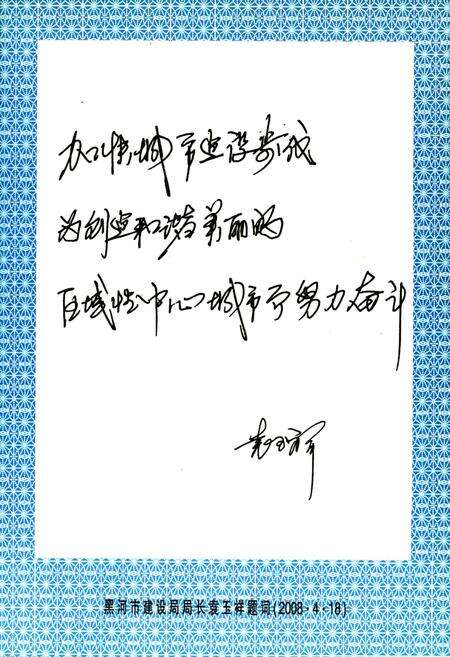 加快城市建设步伐
为创建和谐美丽的
区域性中心城市而努力奋斗
袁玉祥
黑河市建设局局长袁玉祥题词(2008·4·18)